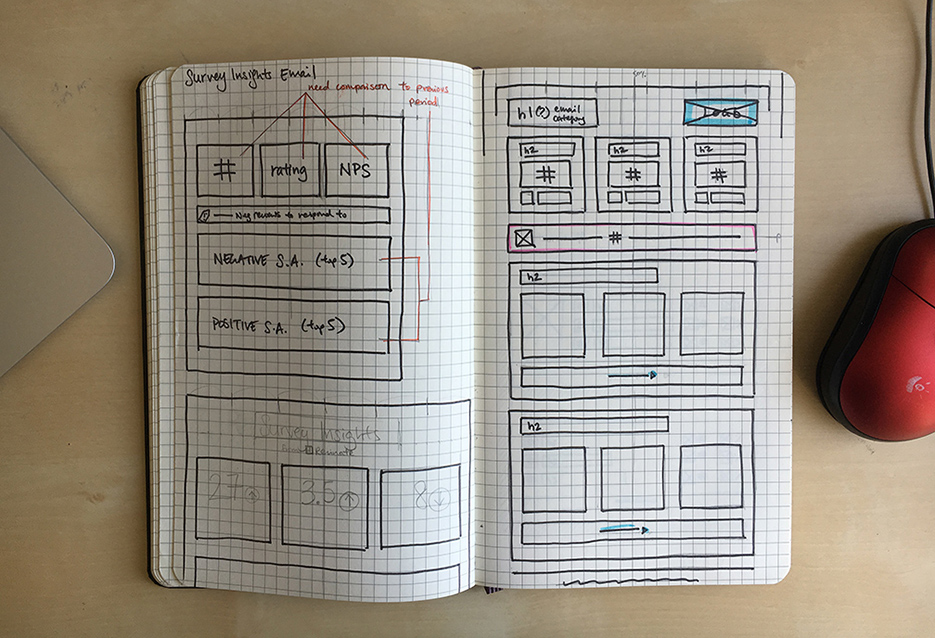 Survey Insights Email
need comparison to previous
period
#
rating
NPS
Neg reviews to respond to
NEGATIVE S.A. (top 5)
POSITIVE S.A. (top 5)
Survey Insights
27
3.5
8
h1(?) email
category
LOGO
h2
h2
h2
#
#
#
#
h2
h2